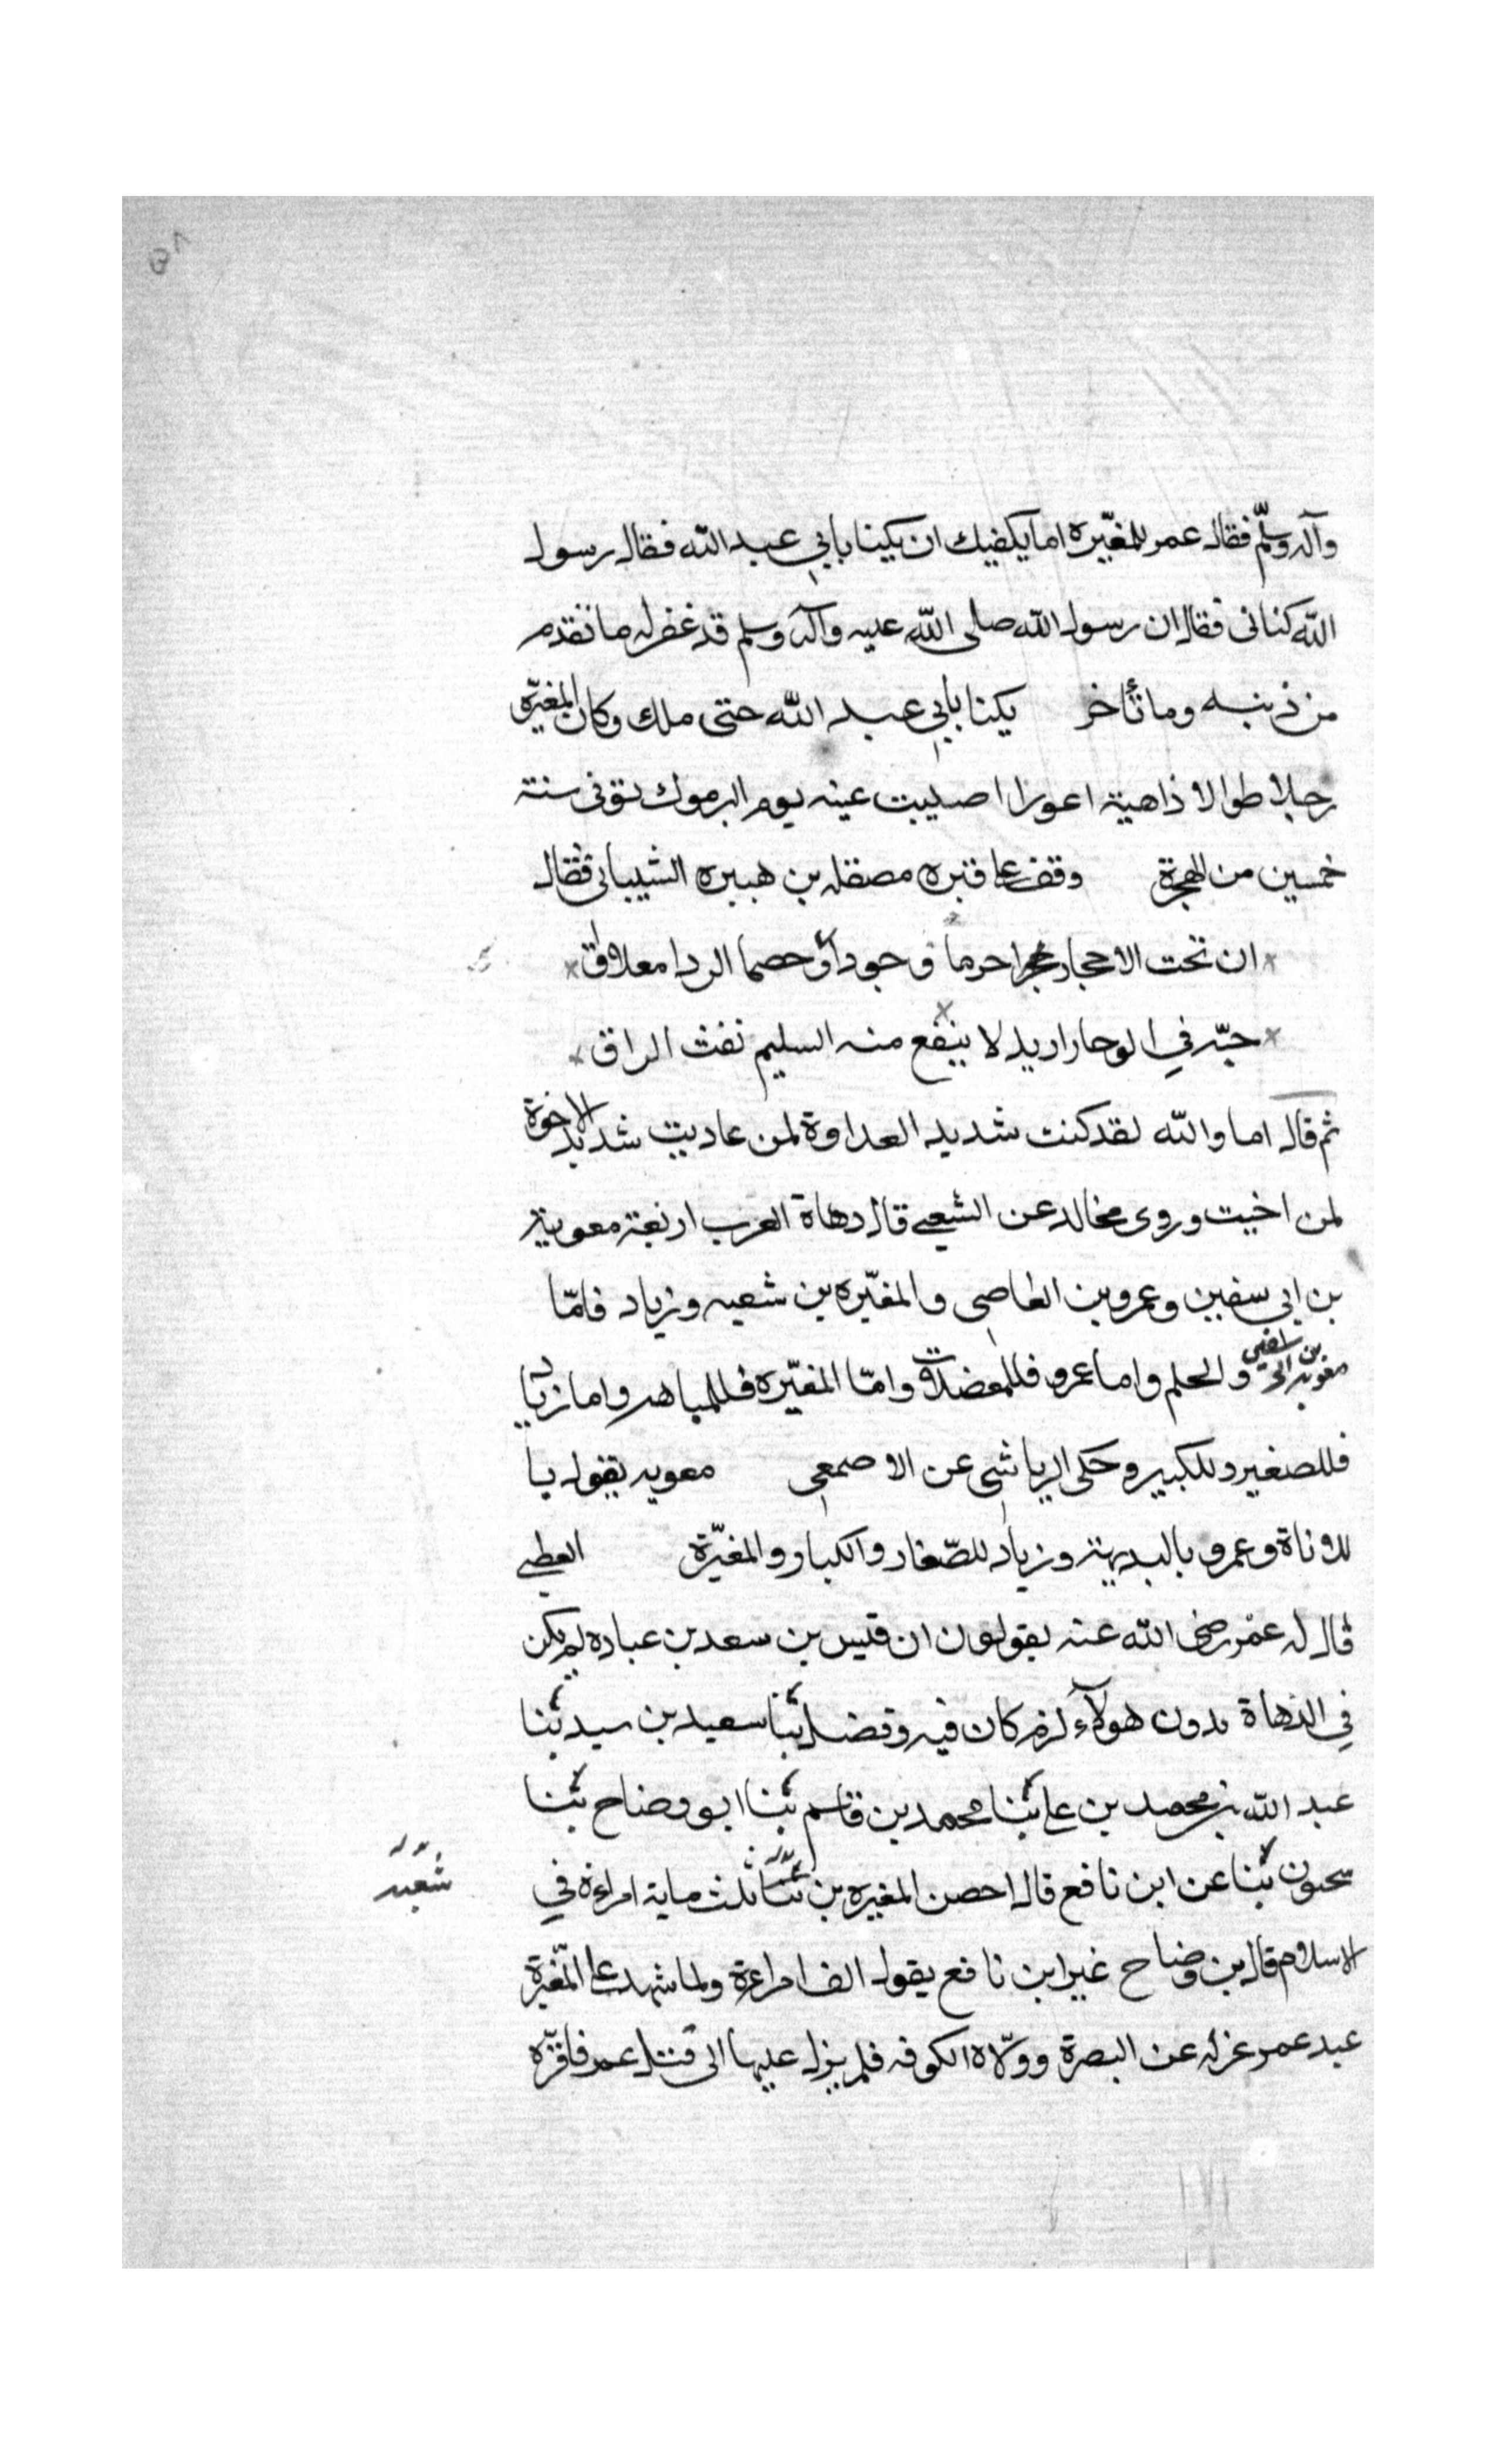 ٥٨
وآله وسلّم فقال عمر للمغيّره اما يكفيك ان يكينا بابي عبد الله فقال رسول
الله كنانى فقال ان رسول الله صلى الله عليه وآله وسلم قد غفر له ما تقدم
من ذنبه وما تأخر يكنا بابي عبد الله حتى ملك وكان المغيّره
رجلا طوالا ذاهية اعورا اصيبت عينه يوم اليرموك توفى سنة
خمسين من الهجرة وقف على قبره مصقله بن هبيره الشيبانى فقال
ان تحت الاحجار حجرا حرما و جودا وحصما الردا معلاق
حيّه في الوجار اريد لا ينفع منه السليم نفث الراق
ثم قال اما والله لقد كنت شديد العداوة لمن عاديت شديد الاخوة
لمن اخيت وروى مخالد عن الشعبي قال دهاة العرب اربعة معوية
بن ابي سفين وعمرو بن العاصي والمغيّره بن شعبه وزياد فامّا
معويه بن ابي سفين والحلم واما عمرو فللمعضلات وامّا المغيّره فللمباهه واما زياد
فللصغير وللكبير وحكى الرياشي عن الاصمعي معويه يقول يا
للاوناة وعمرو بالبديهة وزياد للصّغار والكبار والمغيّرة العطي
قال له عمر رضى الله عنه يقولون ان قيس بن سعد بن عباده لم يكن
في الدهاة بدون هولآء كرم كان فيه وفضل ثنا سعيد بن سيد ثنا
عبد الله بن محمد بن على ثنا محمد بن قاسم ثنا ابو وضاح ثنا
سحنون ثنا عن ابن نافع قال احصن المغيره بن ثنا ثلث ماية امراءة في
شعبه
الاسلام قال بن وضاح غير ابن نافع يقول الف امراءة ولما شهد على المغّيرة
عبد عمر عزله عن البصرة وولّاه الكوفه فلم يزل عليها الى قتل عمر فاقرّه